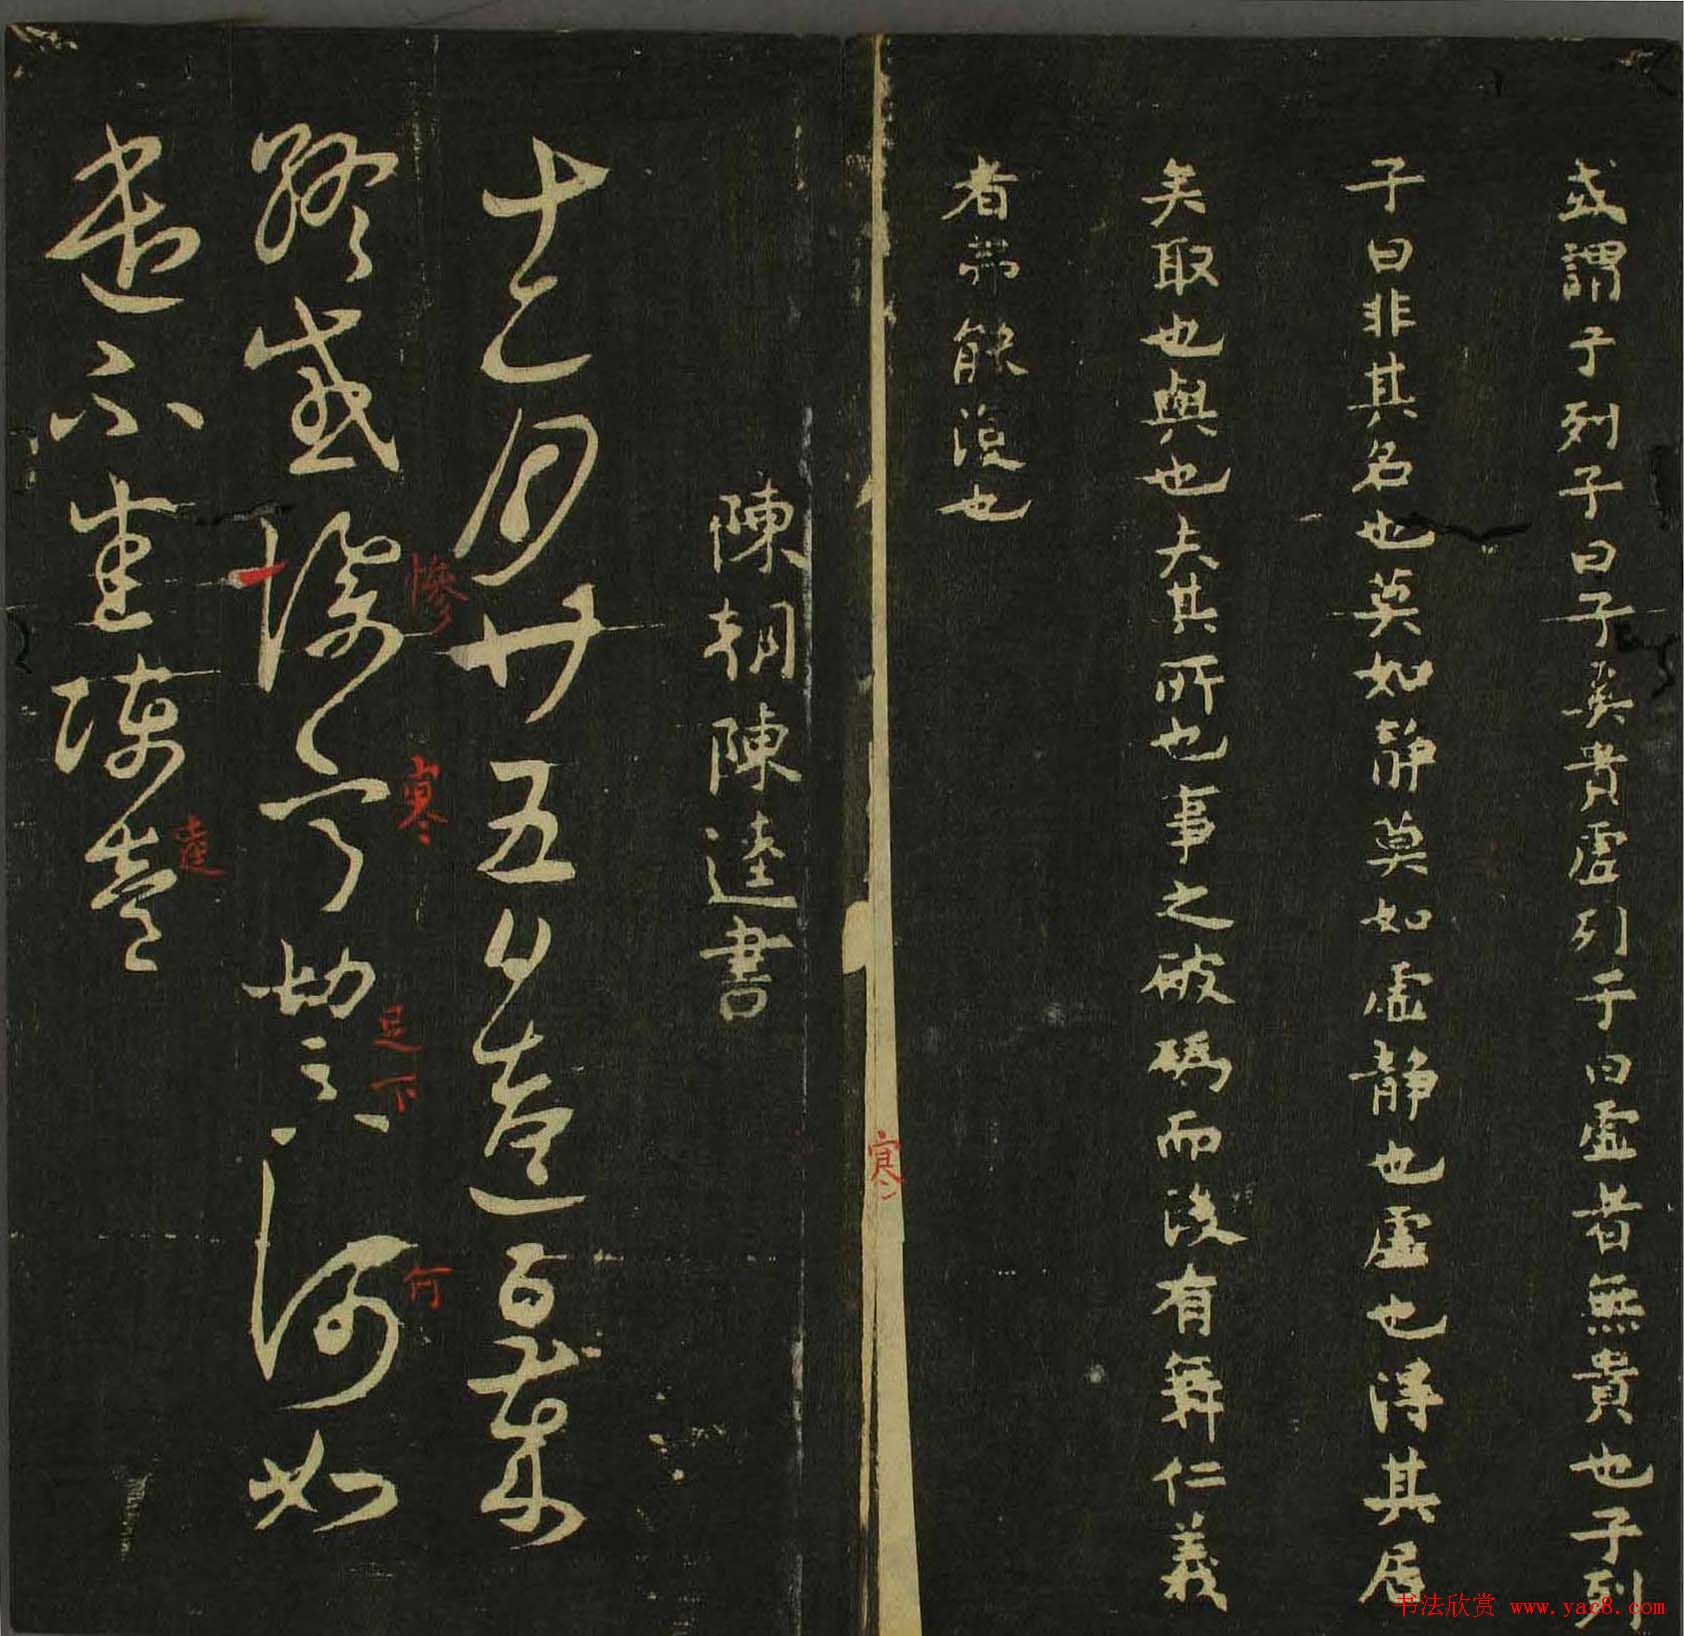 或謂子列子曰子奚貴虛列子曰虛者無貴也子列
子曰非其名也莫如静莫如虛静也虛也淂其居
矣取也與也夫其所也事之破碼而後有舞仁義
者弗能復也
陳朝陳逵書
十二月廿五日逵頓首歲
終感深寒切足下何如
遣不盡陳逵
慘
寒
足下
何
逵
寒
书法欣赏 www.yac8.com